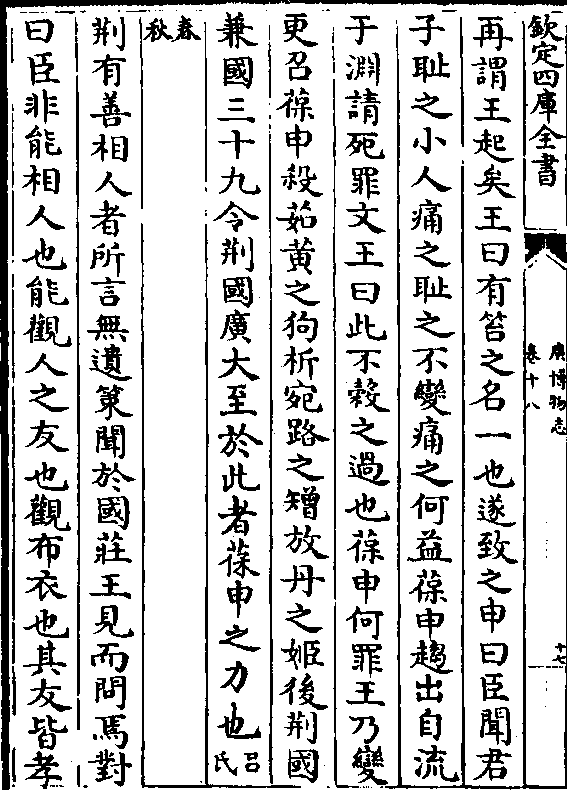 欽定四庫全書
廣博物志
卷十八
十七
再謂王起矣王曰有笞之名一也遂致之申曰臣聞君
子耻之小人痛之耻之不變痛之何益葆申趨出自流
于淵請死罪文王曰此不榖之過也葆申何罪王乃變
更召葆申殺茹黃之狗析宛路之矰放丹之姬後荆國
兼國三十九令荆國廣大至於此者葆申之力也吕氏
春秋
荆有善相人者所言無遺策聞於國莊王見而問焉對
曰臣非能相人也能觀人之友也觀布衣也其友皆孝